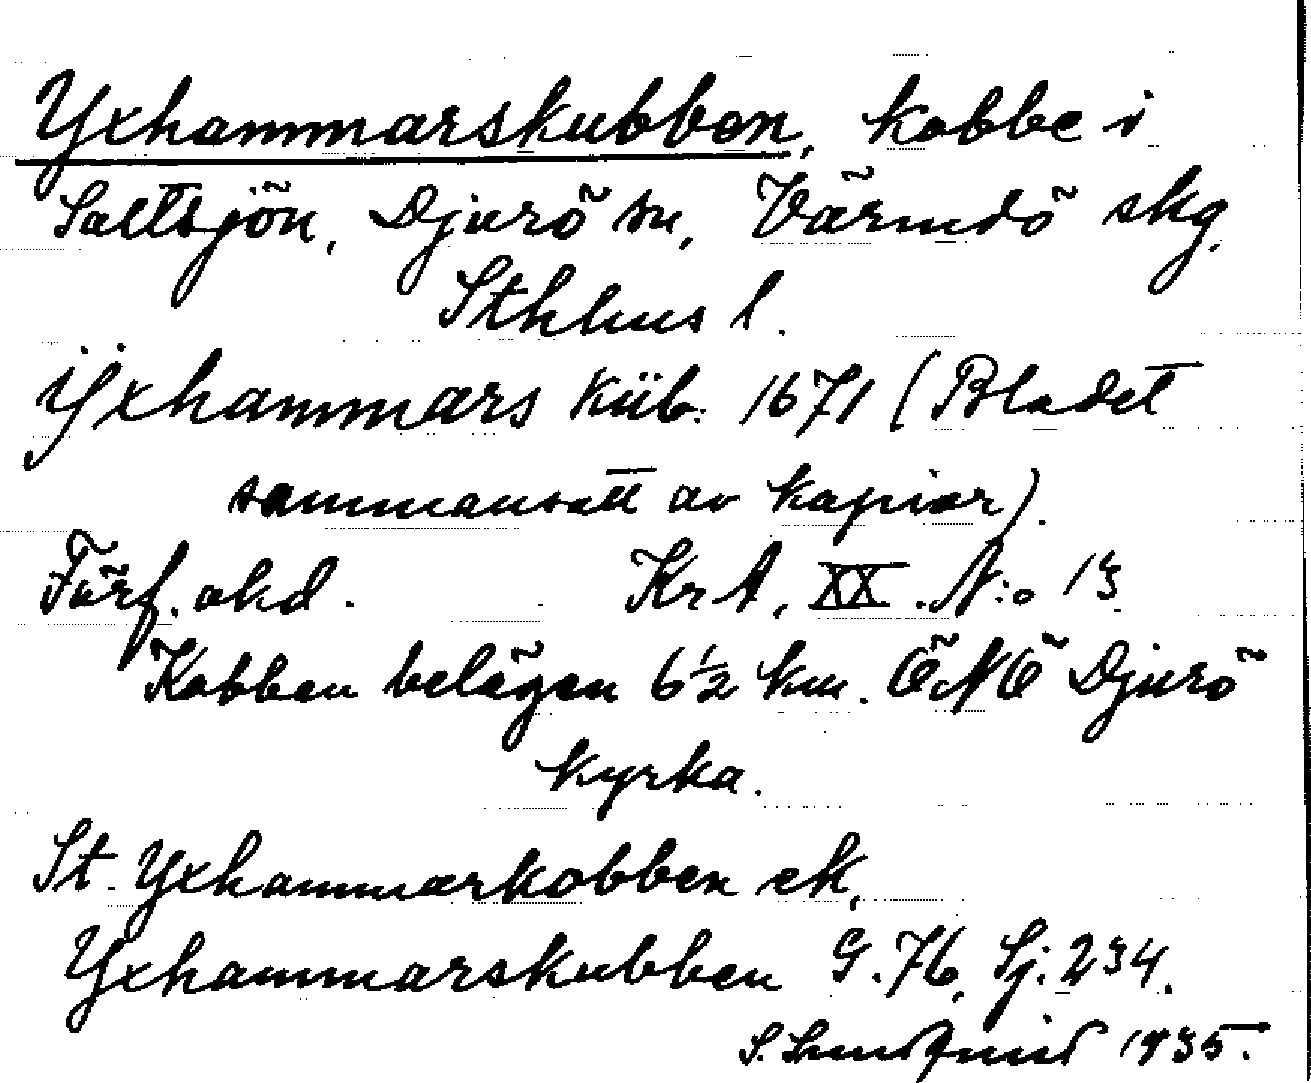 Yxhammarskubben, kobbe i
Saltsjön, Djurö sn, Värmdö skg,
Sthlms l.
Ÿxhammars Küb. 1671 (Bladet
sammansatt av kopior).
Förf. okd. KrA, XX. N:o 13
Kobben belägen 6½ km. ÖNÖ Djurö
kyrka.
St. Yxhammarkobben ek,
Yxhammarskubben G. 76, Sj. 234.
S. Lundquist 1935.